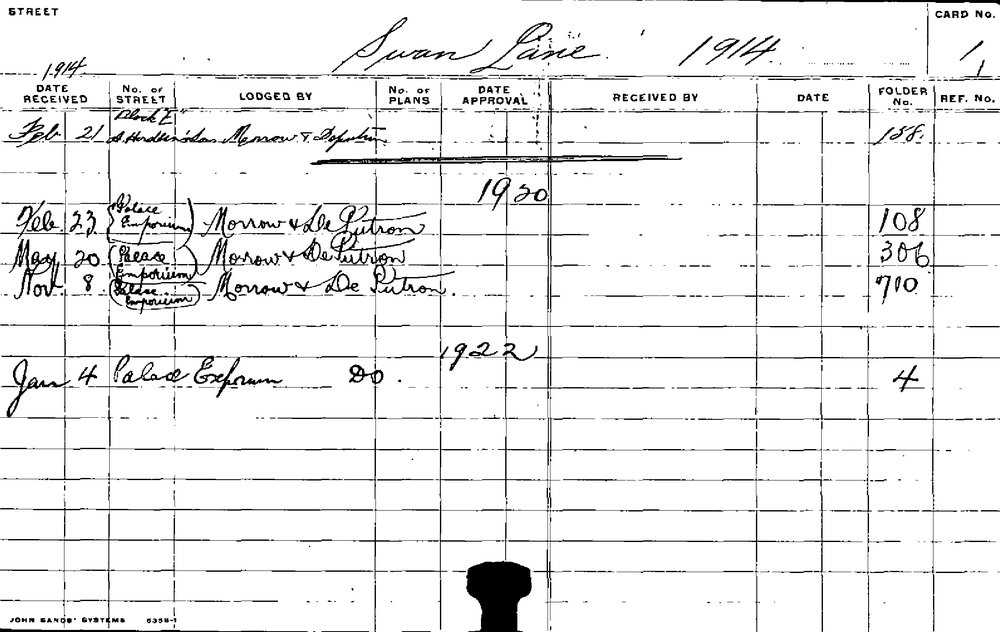 STREET
CARD No.
Swan Lane 1914
1/1
1914
DATE RECEIVED
No. OF STREET
LODGED BY
No. OF PLANS
DATE APPROVAL
RECEIVED BY
DATE
FOLDER No.
REF. No.
"Block E"
Feb. 21 A. Hordern & Sons Morrow & Deputron 158.
1920
Feb. 23 (Palace Emporium) Morrow & De Putron 108
May 20 (Palace Emporium) Morrow & De Putron 306
Nov. 8 (Palace Emporium) Morrow & De Putron. 710
1922
Jan 4 Palace Emporium DO. 4
JOHN SANDS' SYSTEMS 6356-1